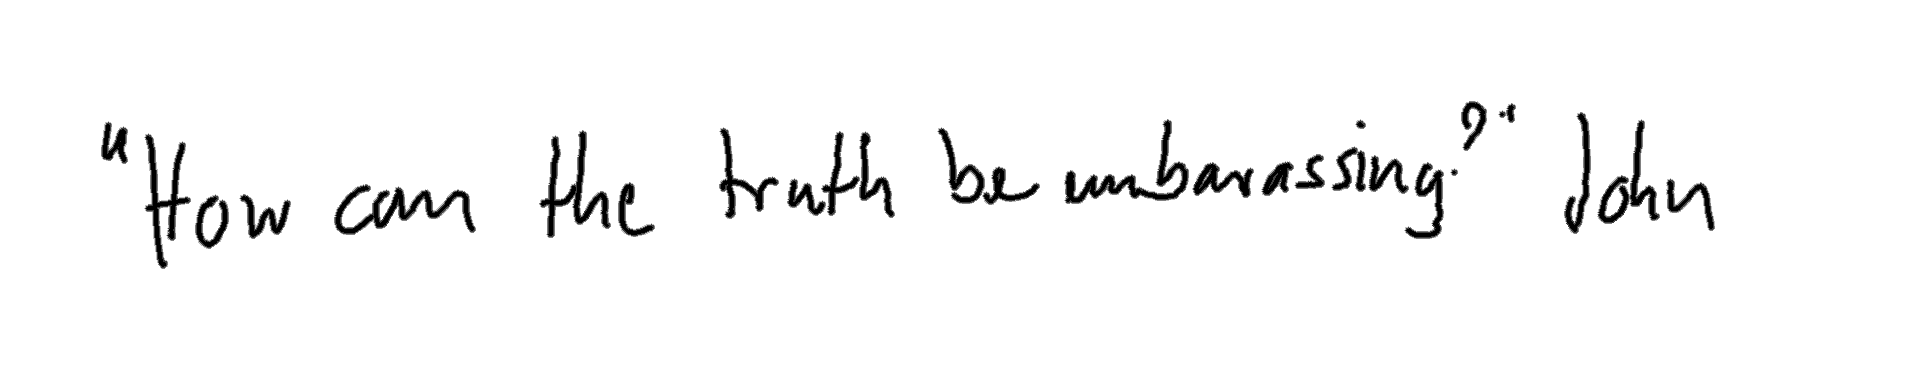 "How can the truth be embarassing?" John